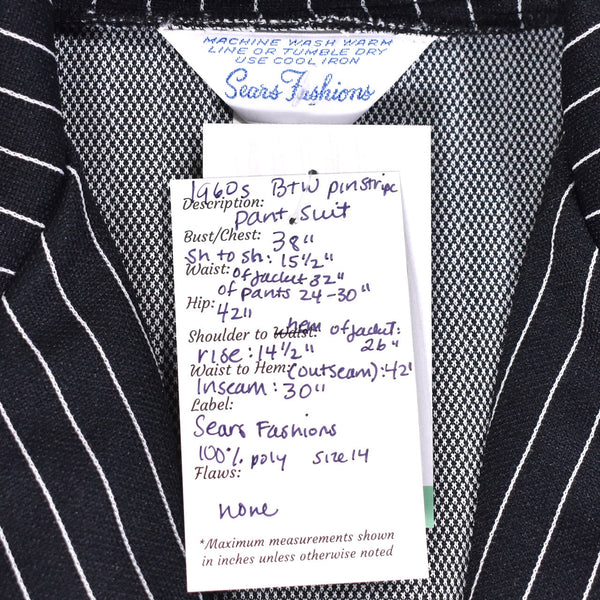 MACHINE WASH WARM
LINE OR TUMBLE DRY
USE COOL IRON
Sears Fashions
1960s B+W pinstripe
Description:
pant suit
Bust/Chest: 38"
sh to sh: 15 1/2"
Waist: of jacket 32"
of pants 24-30"
Hip: 42"
Shoulder to Waist: hem of jacket: 26"
rise: 14 1/2"
Waist to Hem: (outseam): 42"
Inseam: 30"
Label:
Sears Fashions
100% poly size 14
Flaws:
none
*Maximum measurements shown
in inches unless otherwise noted